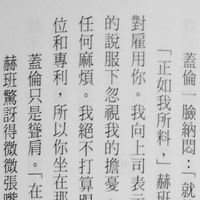 蓋倫一臉納悶：「就
「正如我所料，」赫班
對雇用你。我向上司表示
的說服下忽視我的擔憂，
任何麻煩。我絕不打算眼
位和專利，所以你坐在那
蓋倫只是聳肩。「在
赫班驚訝得微微張嘴